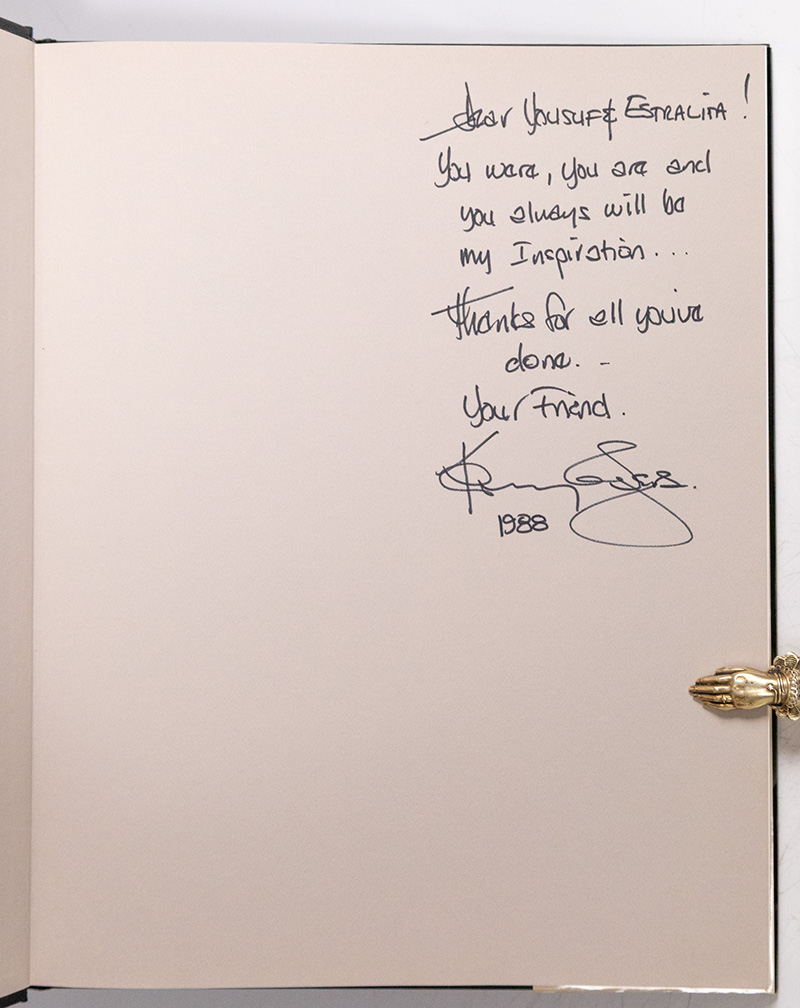 Dear Yousuf & Estralita!
You were, you are and
you always will be
my Inspiration...
Thanks for all you've
done. -
Your Friend.
Kenny
1988